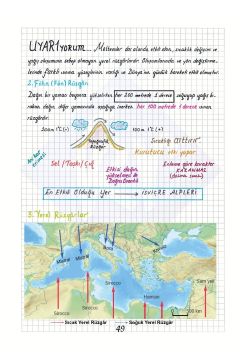 UYARIyorum... Meltemler dar alanda etkili olan, sıcaklık değişimi ve
yağış oluşumuna sebep olmayan yerel rüzgârlardır. Oluşumlarında ve yön değiştirme-
lerinde farklı ısınma, yükseltinin varlığı ve Dünya'nın günlük hareketi etkili olmuştur.
2. Föhn (Fön) Rüzgârı
Dağın bir yamacı boyunca yükselirken her 200 metrede 1 derece soğuyup yağış bı-
rakan dağın, diğer yamacında aşağıya inerken her 100 metrede 1 derece ısınan
rüzgârdır.
200m 1°C (-)
100m 1°C (+)
Sıcaklığı ARTTIRIR
Kurutucu etki yapar
Sel / Taşkı / Çığ
Etkisi dağın
yükseltisi ile
Doğru Orantılı
Enleme göre karakter
KAZANMAZ
En Etkili Olduğu Yer
İSVİÇRE ALPLERİ
3. Yerel Rüzgârlar
Mistral
Mistral
Bora
Sirocco
Sirocco
Sirocco
Hamsin
Sam yeli
500 km
Sıcak Yerel Rüzgâr
Soğuk Yerel Rüzgâr
49